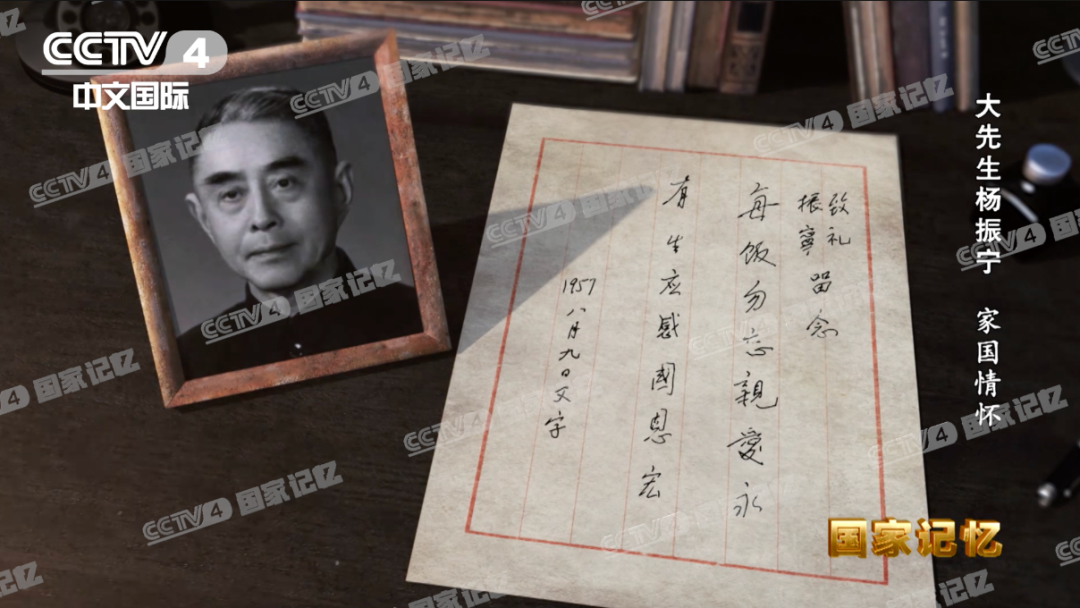 CCTV 4
中文国际
大先生杨振宁 家国情怀
致礼
振寧 留念
每飯勿忘親愛永
有生应感國恩宏
1957 八月九日父字
国家记忆
CCTV 4 国家记忆